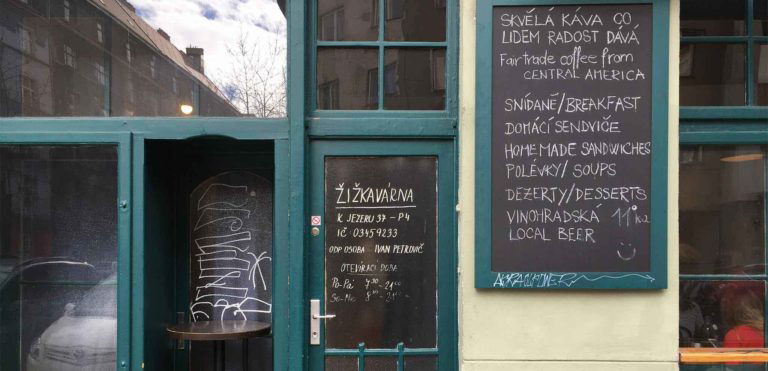 ŽIŽKAVÁRNA
K JEZERU 37 - P4
IČ 03459233
ODP. OSOBA IVAN PETROVIČ
OTEVÍRACÍ DOBA
Po-Pá 7.30 - 21.00
So-Ne 8.30 - 21.00
SKVĚLÁ KÁVA CO
LIDEM RADOST DÁVÁ
Fair trade coffee from
CENTRAL AMERICA
SNÍDANĚ/BREAKFAST
DOMÁCÍ SENDVIČE
HOME MADE SANDWICHES
POLÉVKY/SOUPS
DEZERTY/DESSERTS
VINOHRADSKA 11°
LOCAL BEER